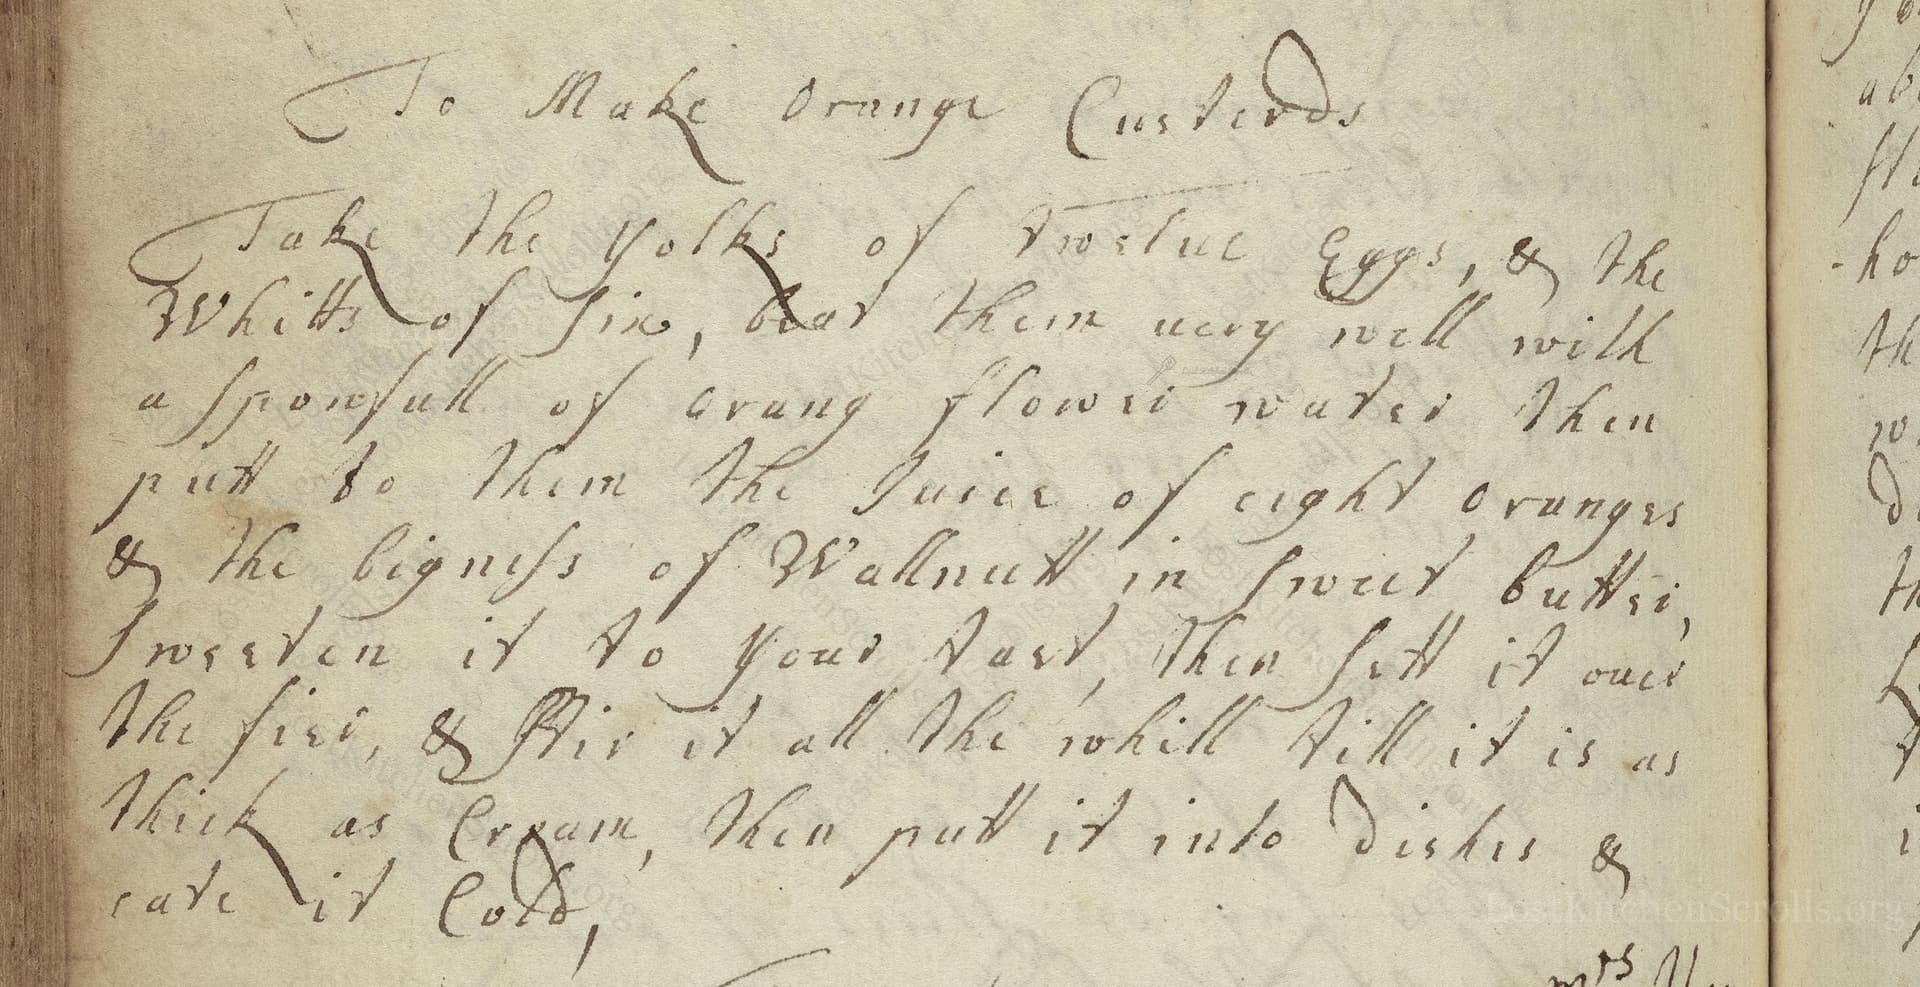 To Make Orange Custerds
Take the yolks of twelue Eggs, & the
Whitts of six, beat them uery well with
a sponfull of orang flower water then
putt to them the Juice of eight oranges
& the bigness of Wallnutt in sweet butter,
sweeten it to your tast, then sett it ouer
the fier, & stir it all the whill till it is as
thick as Cream, then putt it into Dishes &
eate it Cold,
mrs
LostKitchenScrolls.org